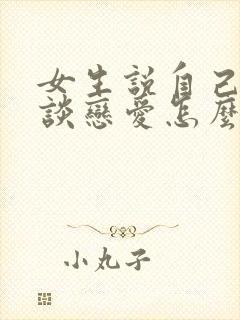 女生說自己
談戀愛怎麼
小丸子